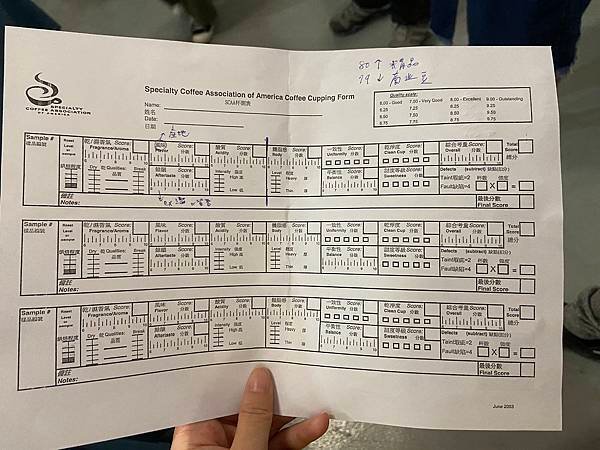 80个 精品
79↓ 商业豆
SPECIALTY
COFFEE ASSOCIATION
OF AMERICA
Specialty Coffee Association of America Coffee Cupping Form
Name: SCAA杯測表
姓名
Date:
日期
Quality scale:
6.00 - Good 7.00 - Very Good 8.00 - Excellent 9.00 - Outstanding
6.25 7.25 8.25 9.25
6.50 7.50 8.50 9.50
6.75 7.75 8.75 9.75
產地
Sample # Roast Level of sample 乾/濕香氣 Score: 風味 Score: 酸質 Score: 體脂感 Score: 一致性 Score: 乾淨度 Score: 綜合考量 Score: Total Score
樣品編號 Fragrance/Aroma 分數 Flavor 分數 Acidity 分數 Body 分數 Uniformity 分數 Clean Cup 分數 Overall 分數 總分
烘焙程度 Dry 乾 Qualities: Break 餘韻 Score: Intensity 強度 Level 程度 平衡性 Score: 甜度等級 Score: Defects (subtract) 缺點(扣分)
品質 Aftertaste 分數 High 高 Heavy 厚 Balance 分數 Sweetness 分數 Taint瑕疵=2 杯數 強度
Low 低 Thin 薄 Fault缺陷=4 X =
備註 最後分數
Notes: Final Score
Sample # Roast Level of sample 乾/濕香氣 Score: 風味 Score: 酸質 Score: 體脂感 Score: 一致性 Score: 乾淨度 Score: 綜合考量 Score: Total Score
樣品編號 Fragrance/Aroma 分數 Flavor 分數 Acidity 分數 Body 分數 Uniformity 分數 Clean Cup 分數 Overall 分數 總分
烘焙程度 Dry 乾 Qualities: Break 餘韻 Score: Intensity 強度 Level 程度 平衡性 Score: 甜度等級 Score: Defects (subtract) 缺點(扣分)
品質 Aftertaste 分數 High 高 Heavy 厚 Balance 分數 Sweetness 分數 Taint瑕疵=2 杯數 強度
Low 低 Thin 薄 Fault缺陷=4 X =
備註 最後分數
Notes: Final Score
Sample # Roast Level of sample 乾/濕香氣 Score: 風味 Score: 酸質 Score: 體脂感 Score: 一致性 Score: 乾淨度 Score: 綜合考量 Score: Total Score
樣品編號 Fragrance/Aroma 分數 Flavor 分數 Acidity 分數 Body 分數 Uniformity 分數 Clean Cup 分數 Overall 分數 總分
烘焙程度 Dry 乾 Qualities: Break 餘韻 Score: Intensity 強度 Level 程度 平衡性 Score: 甜度等級 Score: Defects (subtract) 缺點(扣分)
品質 Aftertaste 分數 High 高 Heavy 厚 Balance 分數 Sweetness 分數 Taint瑕疵=2 杯數 強度
Low 低 Thin 薄 Fault缺陷=4 X =
備註 最後分數
Notes: Final Score
June 2003